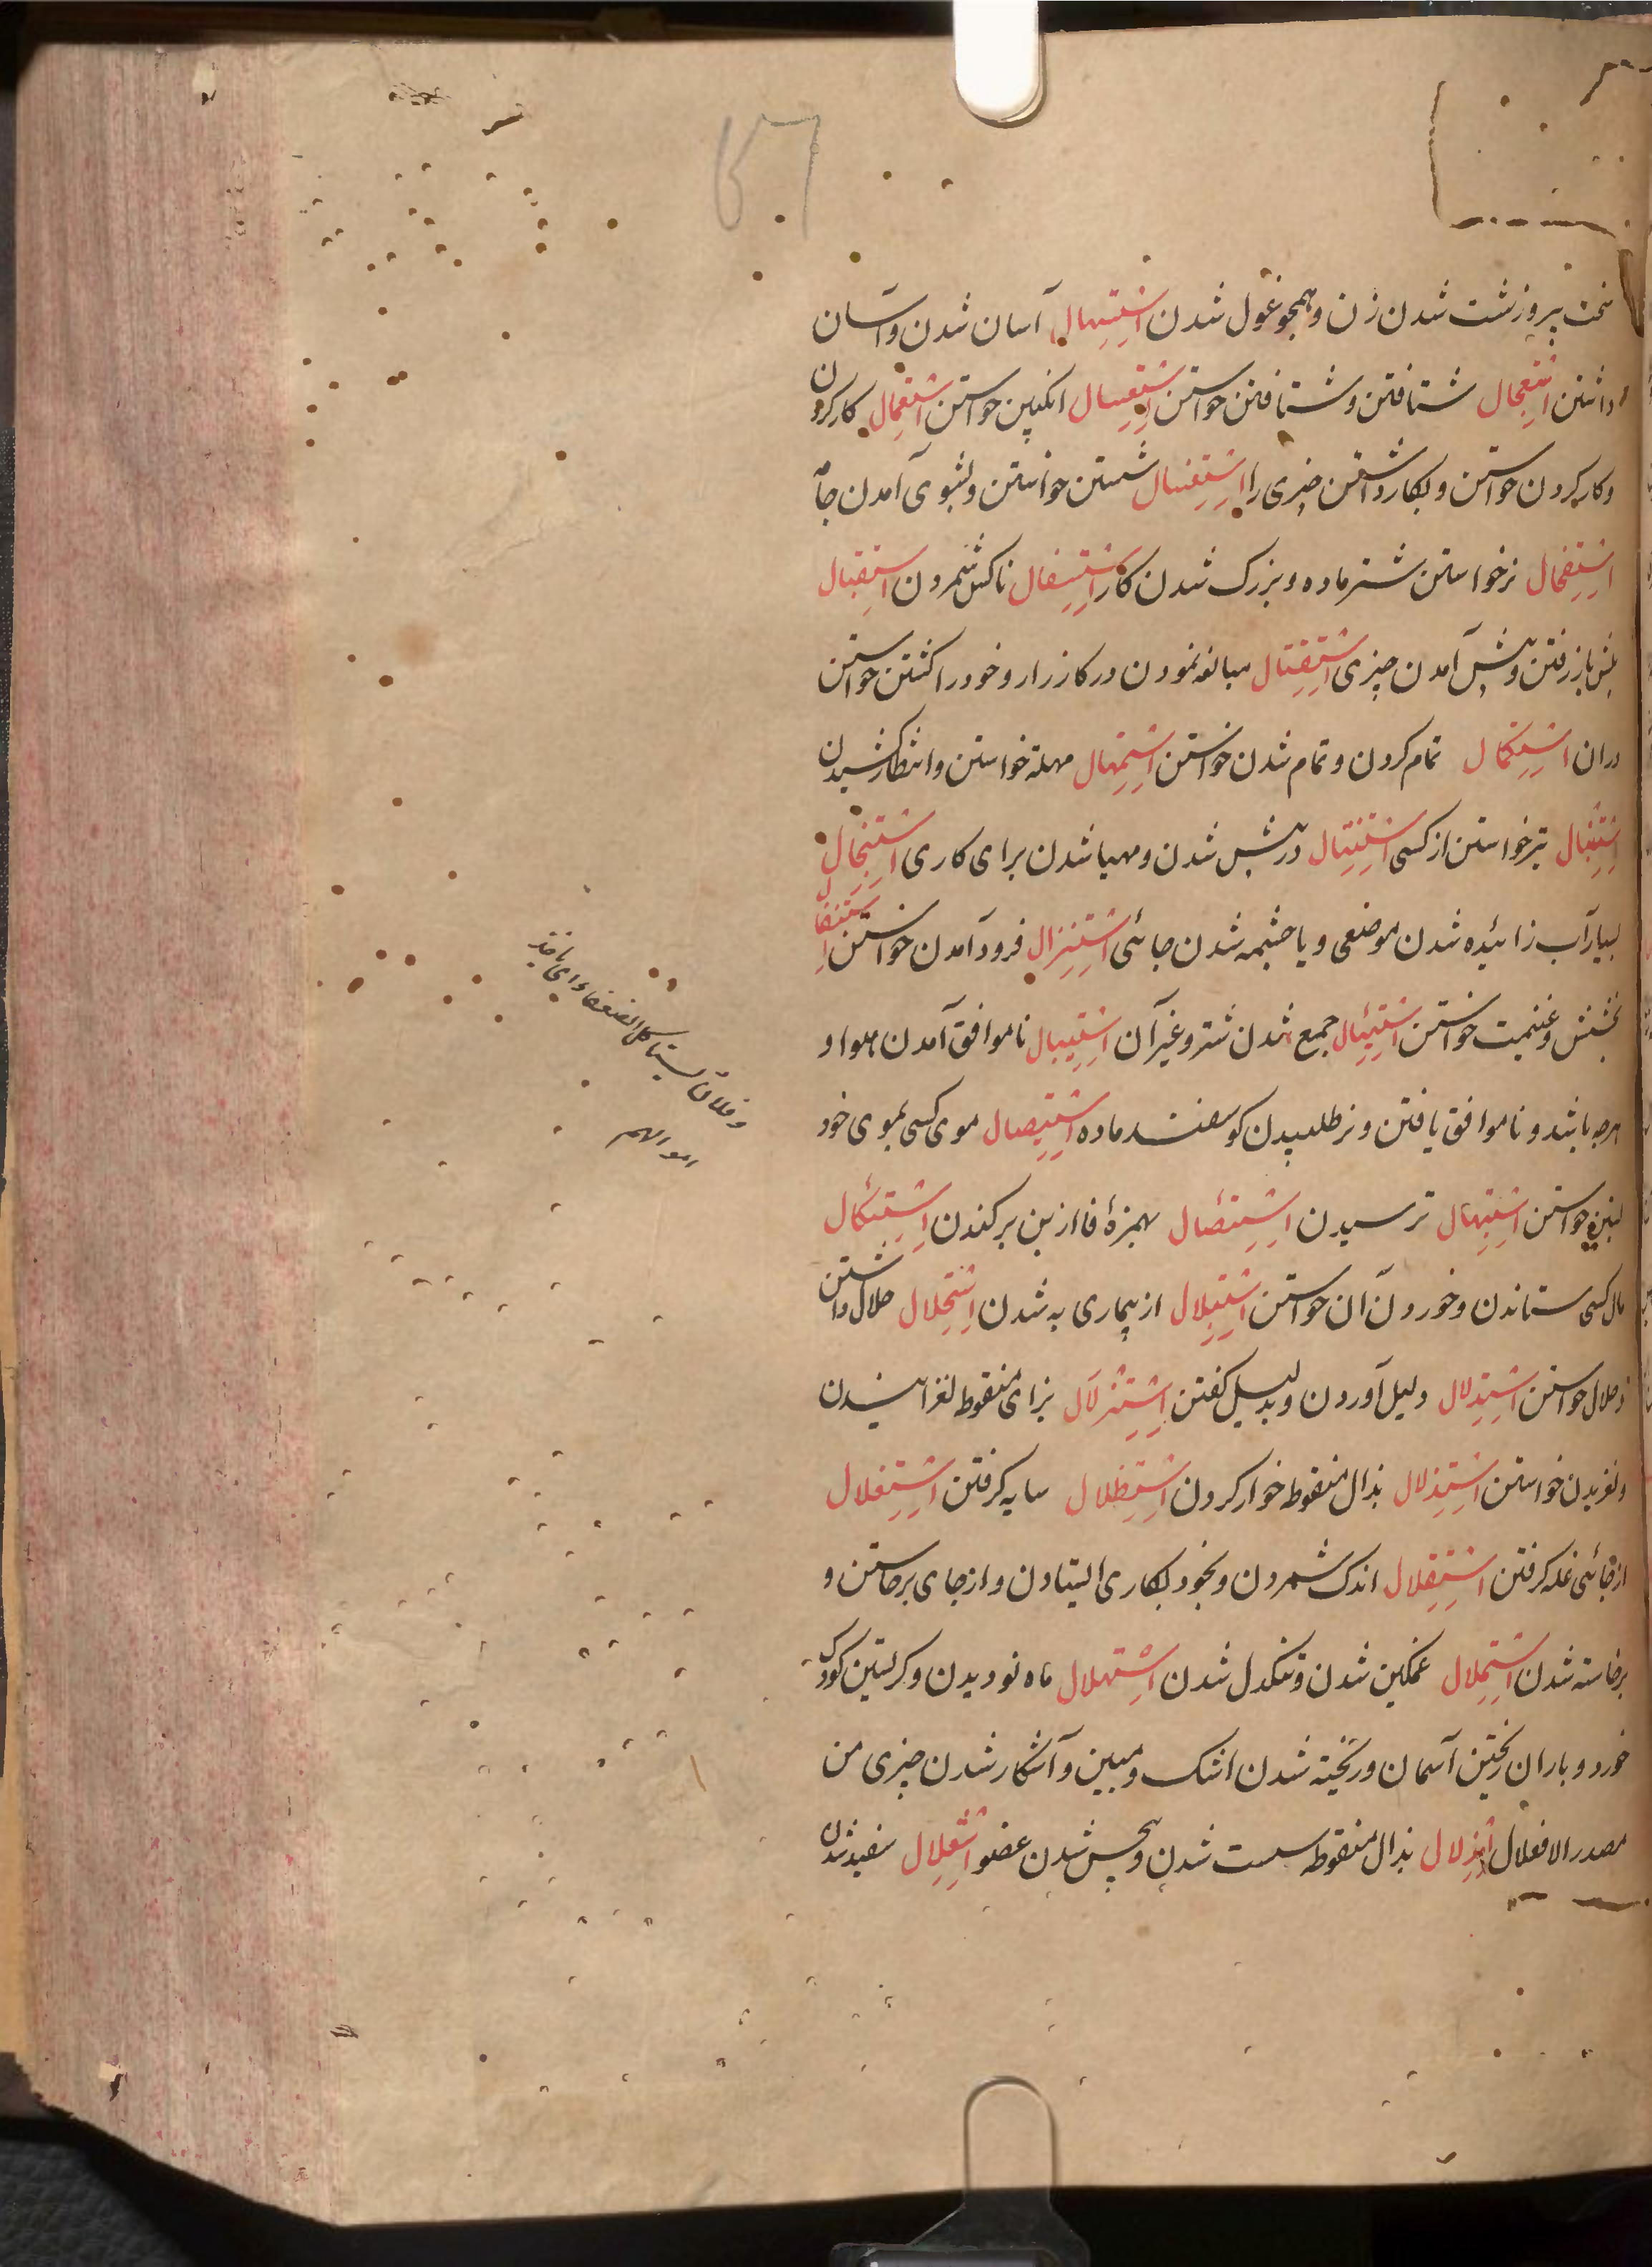 سخت پیر و زشت شدن زن و همچو غول شدن اِسْتِسْهال آسان شدن و آسان
داشتن اِسْتِعْجال شتافتن و شتافتن خواستن اِسْتِعْسال انگبین خواستن اِسْتِعْمال کار کردن
و کار کردن خواستن و بکار داشتن چیزی را اِسْتِغْسال شستن خواستن و بشوی آمدن جامه
اِسْتِفْحال نر خواستن شتر ماده و بزرک شدن کار اِسْتِسْفال ناکس شمردن اِسْتِقْبال
پیش باز رفتن و پیش آمدن چیزی اِسْتِقْتال مبالغه نمودن در کارزار و خود را کشتن خواستن
دران اِسْتِکْمال تمام کردن و تمام شدن خواستن اِسْتِمْهال مهلة خواستن و انتظار کشیدن
اِسْتِنْبال تیر خواستن از کسی اِسْتِنْتال در پیش شدن و مهیا شدن برای کاری اِسْتِنْجال
بسیار آب زائیده شدن موضعی و یا چشمه شدن جائی اِسْتِنْزال فرود آمدن خواستن اِسْتِنْفال
بخشش و غنیمت خواستن اِسْتِیْبال جمع شدن شتر و غیر آن اِسْتِیبال ناموافق آمدن هوا و
هرچه باشد و ناموافق یافتن و نر طلبیدن کوسفند ماده اِسْتِیصال موی کسی بموی خود
خواستن اِسْتِیهال ترسیدن اِسْتِئْصال بهمزهٔ فا از بن برکندن اِسْتِئْکال
مال کسی ستاندن و خوردن آن خواستن اِسْتِبْلال از بیماری به شدن اِسْتِحْلال حلال داشتن
و حلال خواستن اِسْتِدْلال دلیل آوردن و بدلیل کفتن اِسْتِزْلال بزای منقوط لغزانیدن
و لغزیدن خواستن اِسْتِذْلال بذال منقوطه خوار کردن اِسْتِظْلال سایه کرفتن اِسْتِغْلال
از جائی غله کرفتن اِسْتِقْلال اندک شمردن و بخود بکاری ایستادن و از جای برخاستن و
برخاسته شدن اِسْتِمْلال غمکین شدن و تنکدل شدن اِسْتِهْلال ماه نو دیدن و کریستن کودک
خورد و باران ریختن آسمان و ریخته شدن اشک و مبین و آشکار شدن چیزی من
مصدر الافعلال اِذْلال بذال منقوطه سست شدن و بیحس شدن عضو اِسْتِعْلال سفید شدن
و فلان یستاکل الضعفاء ای یاخذ
اموالهم